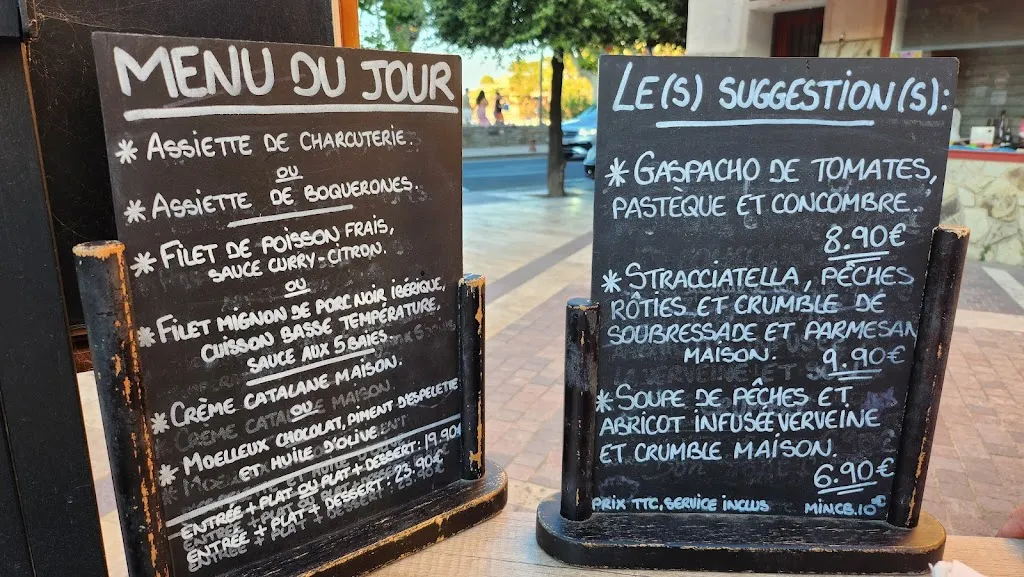 MENU DU JOUR
* ASSIETTE DE CHARCUTERIE.
OU
* ASSIETTE DE BOQUERONES.
* FILET DE POISSON FRAIS,
SAUCE CURRY-CITRON.
OU
* FILET MIGNON DE PORC NOIR IBÉRIQUE,
CUISSON BASSE TEMPÉRATURE.
SAUCE AUX 5 BAIES.
* CRÈME CATALANE MAISON.
OU
* MOELLEUX CHOCOLAT, PIMENT D'ESPELETTE
ET HUILE D'OLIVE.
ENTRÉE + PLAT OU PLAT + DESSERT: 19,90€
ENTRÉE + PLAT + DESSERT: 23,90€
LE(S) SUGGESTION(S):
* GASPACHO DE TOMATES,
PASTÈQUE ET CONCOMBRE.
8.90€
* STRACCIATELLA, PÊCHES
RÔTIES ET CRUMBLE DE
SOUBRESSADE ET PARMESAN
MAISON. 9.90€
* SOUPE DE PÊCHES ET
ABRICOT INFUSÉE VERVEINE
ET CRUMBLE MAISON.
6.90€
PRIX TTC, SERVICE INCLUS MINCB.10€